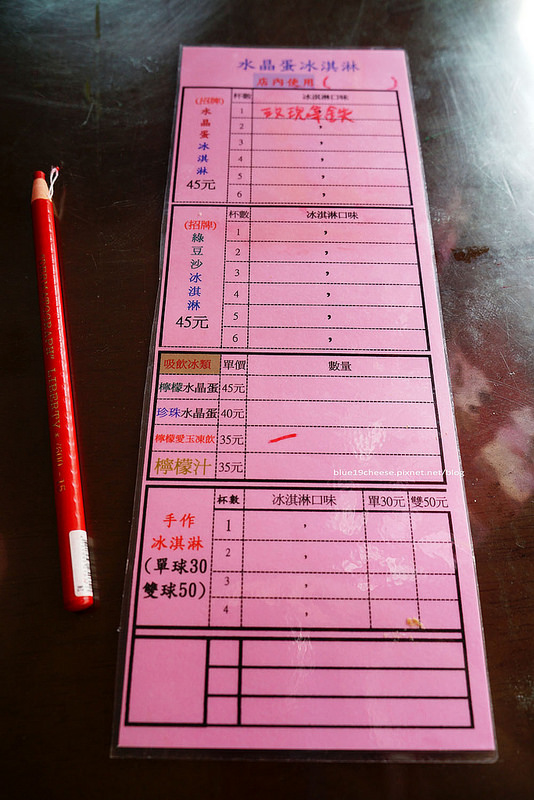 水晶蛋冰淇淋
店內使用 (          )
(招牌)水晶蛋冰淇淋
45元
杯數 冰淇淋口味
1 玫瑰拿鐵
2 ,
3 ,
4 ,
5 ,
6 ,
(招牌)綠豆沙冰淇淋
45元
杯數 冰淇淋口味
1 ,
2 ,
3 ,
4 ,
5 ,
6 ,
吸飲冰類 單價 數量
檸檬水晶蛋 45元
珍珠水晶蛋 40元
檸檬愛玉凍飲 35元 一
檸檬汁 35元
blue19cheese.pixnet.net/blog
手作
冰淇淋
(單球30
雙球50)
杯數 冰淇淋口味 單30元 雙50元
1 ,
2 ,
3 ,
4 ,
LIBERTY